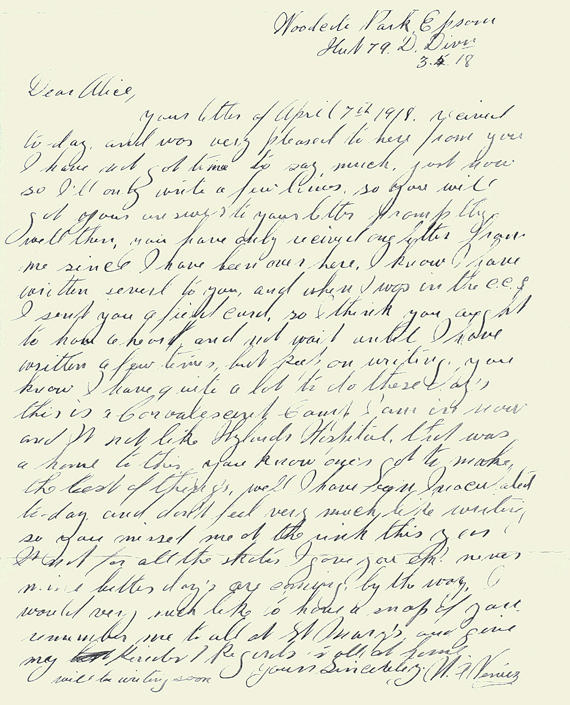 Woodcote Park, Epsom
Hut 79. D. Divn
3.5.18
Dear Alice,
your letter of April 7th 1918. recived
to-day. and was very pleased to here from you
I have not got time to say much, just now
so I'll only write a few lines, so you will
get your answer to your letter promptly,
well then, you have only recived one letter from
me since I have been over here, I know I have
written severl to you, and when I was in the C.C.S
I sent you a field card, so I think you aught
to have a heart, and not wait until I have
written a few times, but keep on writing, you
know I have quite a lot to do these day's
this is a Convalescent Camp I am in now
and it not like Hylands Hospital, that was
a home to this, you know one's got to make,
the best of thing's, well I have been Inoculated
to-day and don't feel very much like writing
so you missed me at the rink this year!
It not for all the skates I gave you eh! never
mind better day's are coming, by the way, I
would very much like to have a snap of you.
remember me to all at St Mary's, and give
my Kindest Regards to all at home
will be writing soon Yours Sincerely W. F.